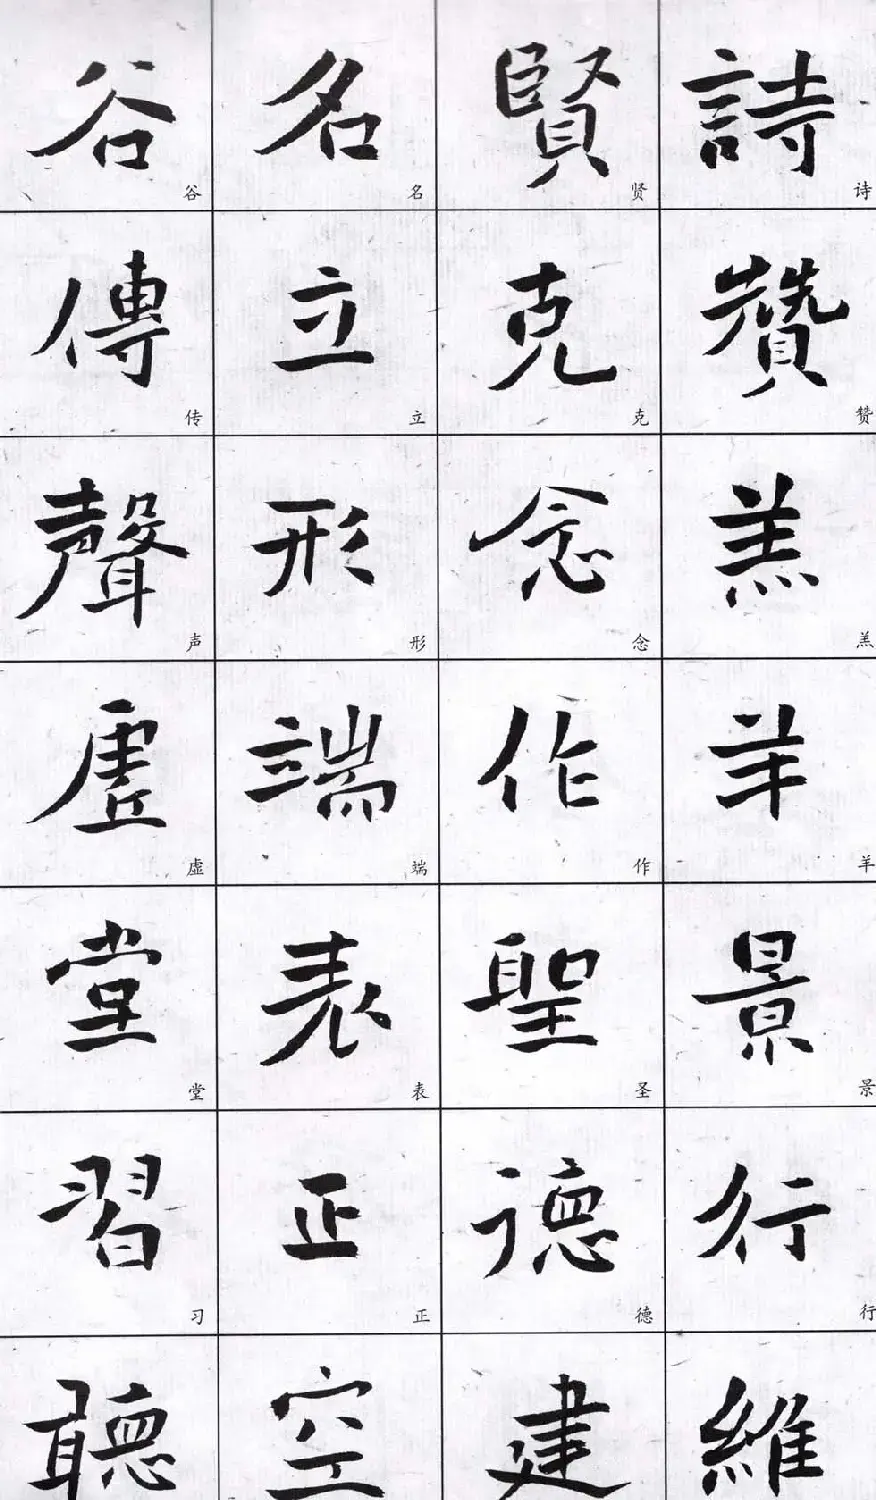 詩贊羔羊景行維
诗赞羔羊景行
賢克念作聖德建
贤克念作圣德
名立形端表正空
名立形端表正
谷傳聲虛堂習聽
谷传声虚堂习